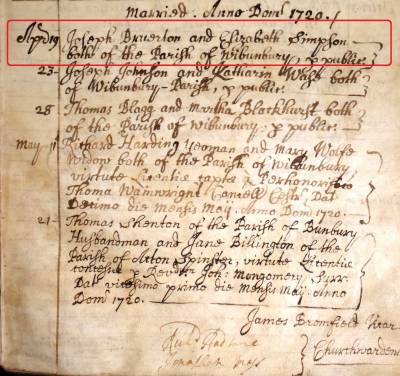 Married. Anno Dom: 1720.
Apr 19 Joseph Bruerton and Elizabeth Simpson
both of the Parish of Wibunbury, p publie.
23- Joseph Johnson and Katharin both
of Wibunbury-Parish, p publie.
28 Thomas Blagg and Martha Blackhurst both
of the Parish of Wibunbury p publie.
May 11 Richard Harding yeoman and Mary Wolfe
Widow both of the Parish of Wibunbury
virtute Licentie
Thoma Wainwright Dat
Decimo die Mensis May. Anno Dom: 1720.
21- Thomas Shenton of the Parish of Bunbury
Husbandman and Jane Billington of the
Parish of Acton Spinster, virtute Licentie
concesse p Joh: Montgomery Surr.
Dat vicesimo primo die Mensis May. Anno
Dom: 1720.
James Bromfield Vicar
Churchwardens